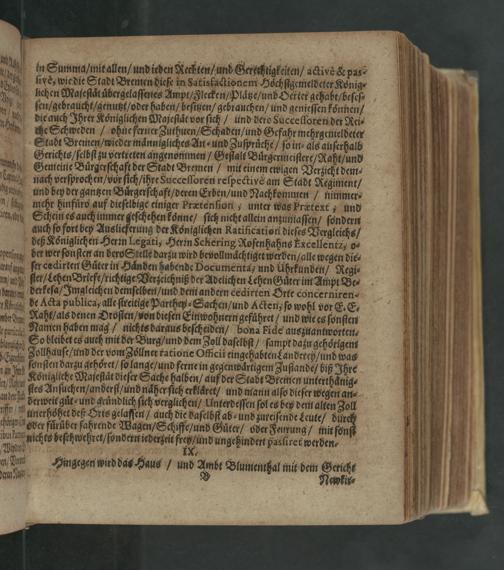 in Summa/mit allen/ und ieden Rechten/ und Gerechtigkeiten/ activè & pas-
sivè, wie die Stadt Bremen diese in Satisfactionem Höchstgemeldeter König-
lichen Majestät übergelassenes Ampt/Flecken/Plätze/und Oerter gehabt/beses-
sen/gebraucht/genutzt/oder haben/ besitzen/gebrauchen/ und geniessen können/
die auch Ihrer Königlichen Majestät vor sich / und dero Successoren der Rei-
che Schweden / ohne ferner Zuthuen/Schaden/und Gefahr mehrgemeldeter
Stadt Bremen/wieder männigliches An- und Zusprüche/ so in- als ausserhalb
Gerichts/selbst zu vertreten angenommen/ Gestalt Bürgermeistere/Raht/und
Gemeine Bürgerschaft der Stadt Bremen / mit einem ewigen Verzicht dem-
nach versprochen/vor sich/ihre Successoren respectivè am Stadt Regiment/
und bey der gantzen Bürgerschaft/deren Erben/und Nachkommen / nimmer-
mehr hinfüro auf dieselbige einiger Prætension, unter was Prætext, und
Schein es auch immer geschehen könne/ sich nicht allein anzumassen/ sondern
auch so fort bey Auslieferung der Königlichen Ratification dieses Vergleichs/
deß Königlichen Herin Legati, Herin Schering Rosenhahns Excellentz, o-
der wer sonsten an dero Stelle darzu wird bevollmächtiget werden/alle wegen die-
ser cedirten Güter in Händen habende Documenta, und Uhrkunden/ Regi-
ster/Lehen Briefe/richtige Verzeichniß der Adelichen Lehen Güter im Ampt Be-
derkesa/Imgleichen demselben/und den andern cedirten Orte concerniren-
de Acta publica, alle streitige Parthey-Sachen/und Acten, so wohl vor E. E.
Raht/als denen Drosten/von diesen Einwohnern geführet / und wie es sonsten
Namen haben mag / nichts daraus bescheiden/ bona Fide auszuantworten.
So bleibet es auch mit der Burg/und dem Zoll daselbst/ sampt dazu gehörigem
Zollhause/und der vom Zöllner ratione Officii eingehabten Länderey/und was
sonsten darzu gehöret/ so lange/und ferne in gegenwärtigem Zustande/ biß Ihre
Königliche Majestät dieser Sache halben/auf der Stadt Bremen unterthänig-
stes Ansuchen/anderst/und näher sich erkläret/ und mann also dieser wegen an-
derweit güt- und gründlich sich verglichen/ Unterdessen sol es bey dem alten Zoll
unerhöhet deß Orts gelassen/ auch die daselbst ab- und zureisende Leute/ durch
oder fürüber fahrende Wagen/Schiffe/und Güter/ oder Feurung / mit sonst
nichts beschwehret/sondern iederzeit frey/und ungehindert passiret werden.
IX.
Hingegen wird das Haus / und Ambt Blumenthal mit dem Gericht
Newkir-